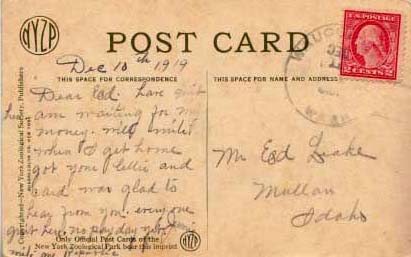 NYZP
POST CARD
Dec 10th 1919
THIS SPACE FOR CORRESPONDENCE
THIS SPACE FOR NAME AND ADDRESS
Dear Ed. have quit
am waiting for my
money. will write
when I get home
got your letter and
card was glad to
hear from you. everyone
quit here. no pay day yet
Mr Ed Leake
Mullan
Idaho
U.S. POSTAGE
2 CENTS 2
WASH
Copyrighted—New York Zoological Society, Publishers
Only Official Post Cards of the
New York Zoological Park bear this imprint
NYZP